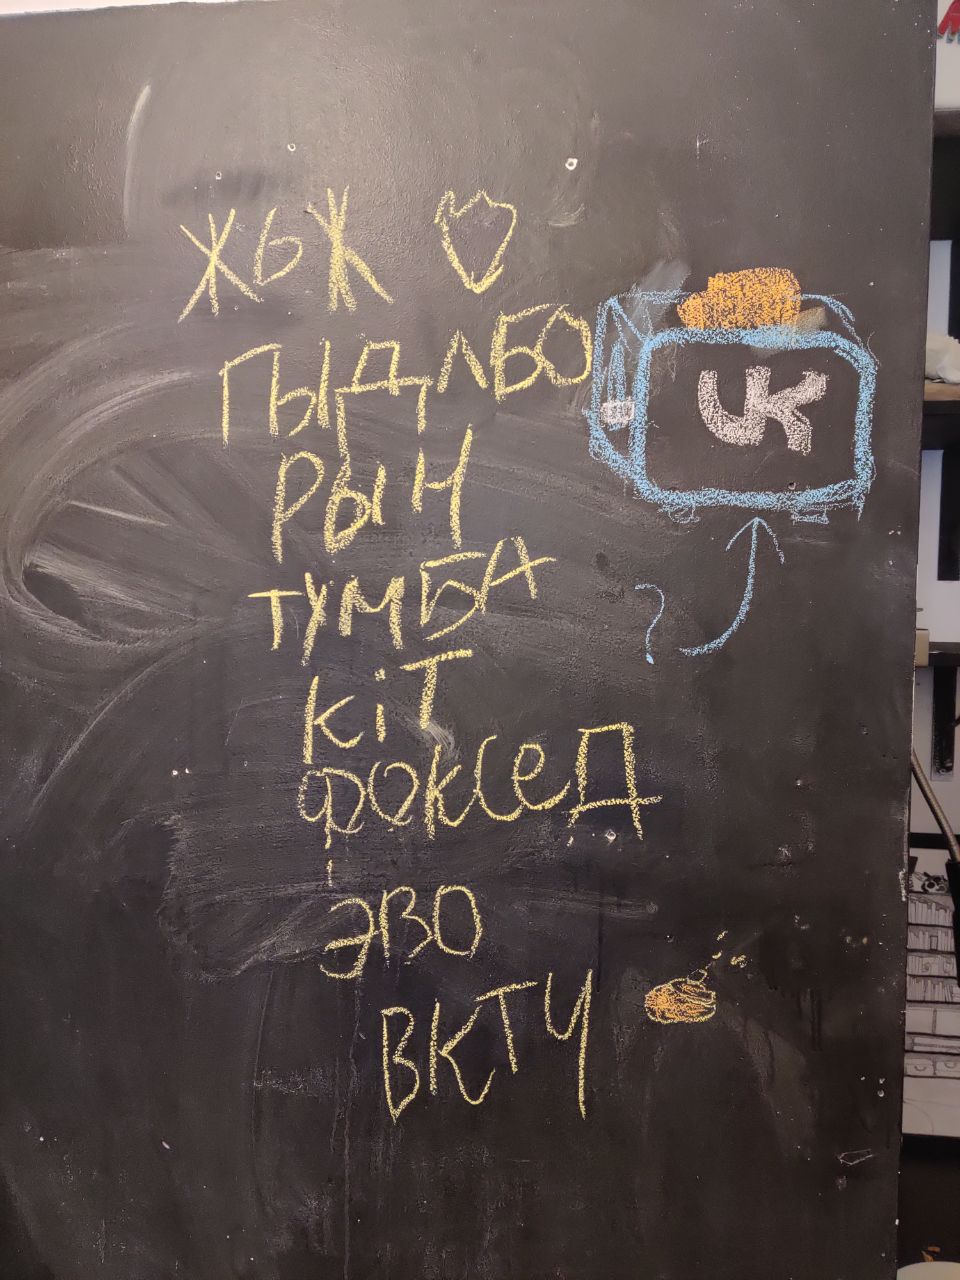 ЖЬЖ
ГЫДЛБО
РЫН
ТУМБА
КіТ
ФОКСЕД
ЭВО
ВКТЧ
VK
?